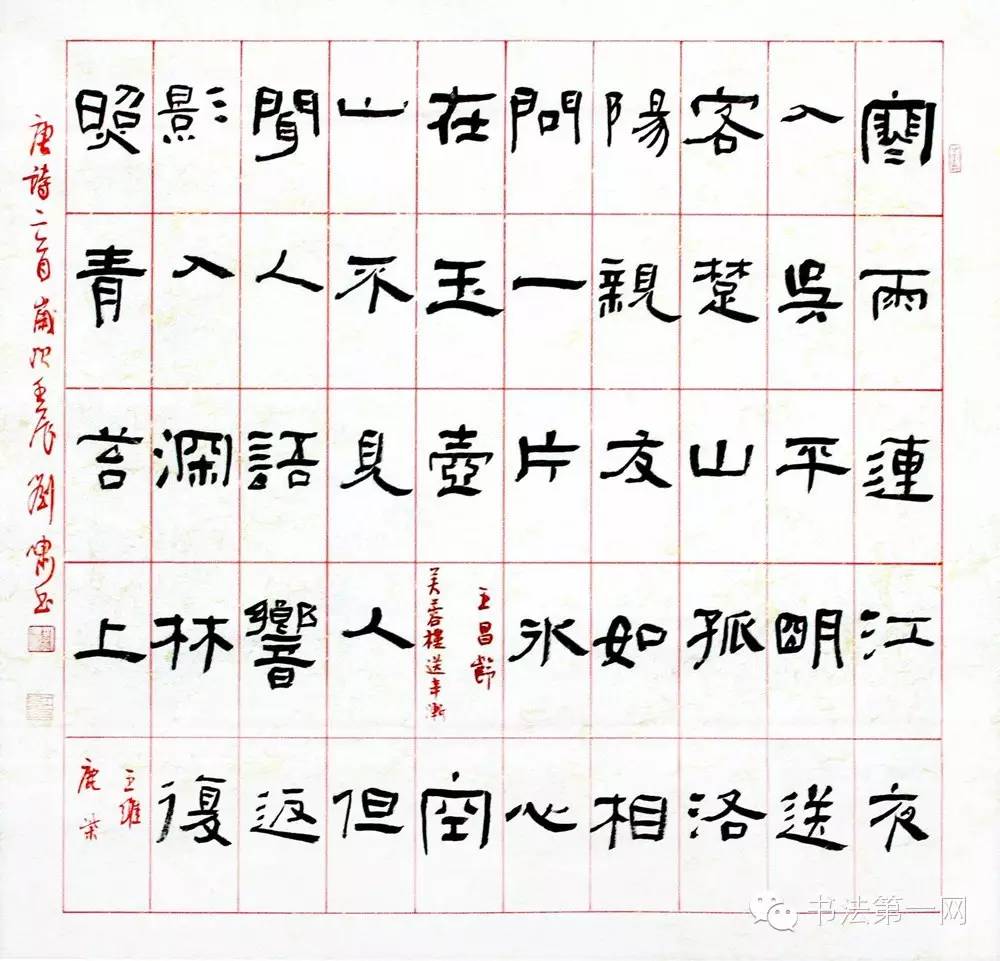 寒雨連江夜
入吳平明送
客楚山孤洛
陽親友如相
問一片氷心
在玉壺
王昌齡
芙蓉樓送辛漸
空
山不見人但
聞人語響返
影入深林復
照青苔上
王維
鹿柴
唐詩二首歲次壬辰劉嘯書
书法第一网